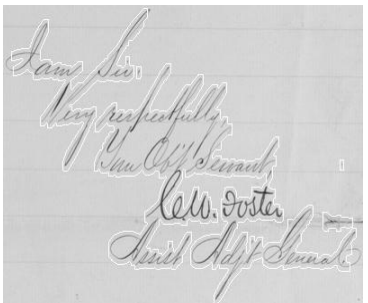 I am, Sir,
Very respectfully,
Your Obt. Servant,
C.W. Foster
Assist Adjt General